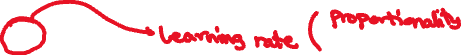 Learning rate (proportionality